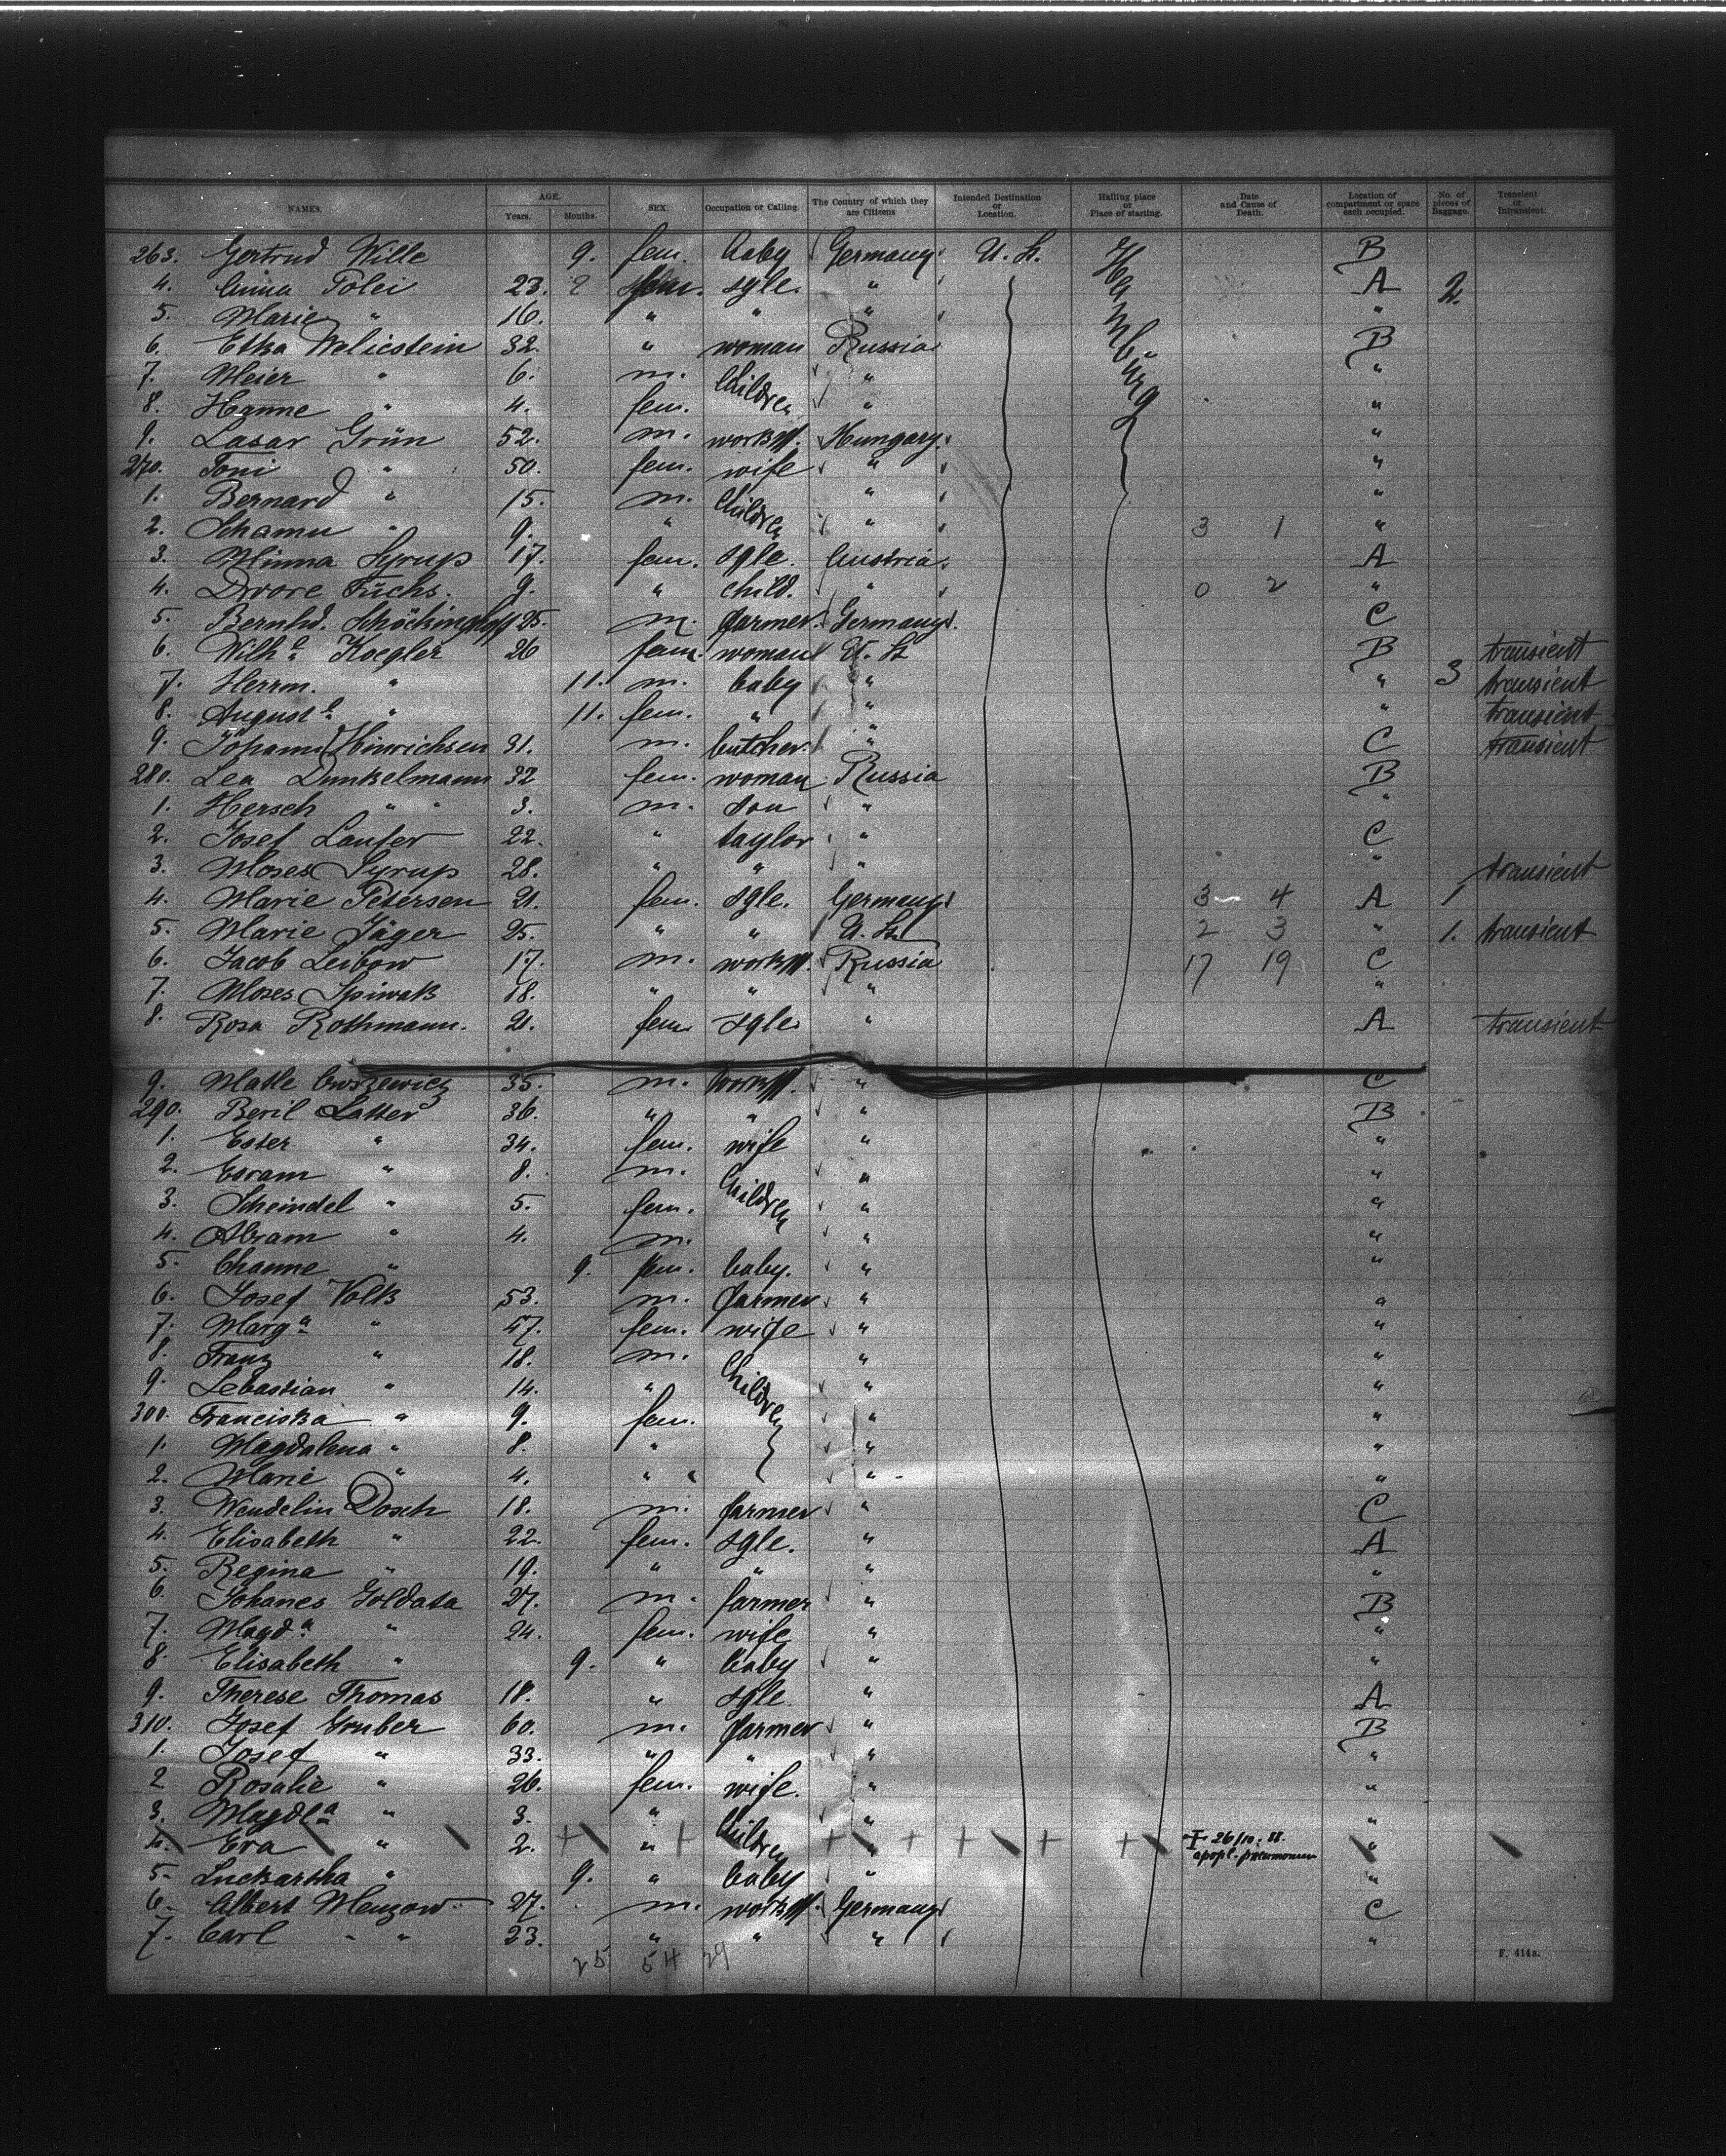 NAMES. AGE. Years. Months. SEX. Occupation or Calling. The Country of which they are Citizens Intended Destination or Location. Hailing place or Place of starting. Date and Cause of Death. Location of compartment or space each occupied. No. of pieces of Baggage. Transient or Intransient.
263. Gertrud Wille 9. fem. baby Germany U. St. Hamburg B
4. Anna Polei 23. fem. sgle. " A 2.
5. Marie " 16. " " " "
6. Etka Wolicstein 32. " woman Russia B
7. Meier " 6. m. Children " "
8. Hanne " 4. fem. " "
9. Lasar Grün 52. m. Hungary. "
270. Toni " 50. fem. wife " "
1. Bernard " 15. m. Children " "
2. Schamu " 9. " " 3 1 "
3. Minna Syrup 17. fem. sgle. Austria. A
4. Dwore Fuchs. 9. " child. " 0 2 "
5. Bernhd. Schöckinghoff 25. m. farmer. Germany. C
6. Wilh. Koegler 26 fem. woman U. St. B transient
7. Herrm. " 11. m. baby " " 3 transient
8. August. " 11. fem. " " " transient
9. Johann Hinrichsen 31. m. butcher. " C transient
280. Lea Dunkelmann 32 fem. woman Russia B
1. Hersch " " 3. m. son " "
2. Josef Laufer 22. " taylor " C
3. Moses Syrup 28. " " " " transient
4. Marie Petersen 21. fem. sgle. Germany 3 4 A 1
5. Marie Jäger 25. " " U. St. 2 3 " 1. transient
6. Jacob Leibow 17. m. Russia 17 19 C
7. Moses Spiwak 18. " " " "
8. Rosa Rothmann. 21. fem. sgle " A transient
9. 35. m. " C
290. Beril Latter 36. " " " B
1. Ester " 34. fem. wife " "
2. Esram " 8. m. Children " "
3. Scheindel " 5. fem. " "
4. Abram " 4. m. " "
5. Channe " 9. fem. baby. " "
6. Josef Volk 53. m. farmer " "
7. Marg.a " 47. fem. wife " "
8. Franz " 18. m. Children " "
9. Sebastian " 14. " " "
300. Franciska " 9. fem. " "
1. Magdalena " 8. " " "
2. Marie " 4. " " " "
3. Wendelin Dosch 18. m. farmer " C
4. Elisabeth " 22. fem. sgle. " A
5. Regina " 19. " " " "
6. Johanes Goldata 27. m. farmer " B
7. Magd.a " 24. fem. wife " "
8. Elisabeth " 9. " baby " "
9. Therese Thomas 18. " sgle. " A
310. Josef Gruber 60. m. farmer " B
1. Josef " 33. " " " "
2 Rosalie " 26. fem. wife. " "
3. Magdl.a " 3. " Children " "
4. Eva " 2. " " 26/10. 88. "
apopl. pneumonum
5. " 9. " baby " "
6. Albert Menzow 27. m. Germany C
7. Carl " 23. " " " "
25 54 29
F. 414a.